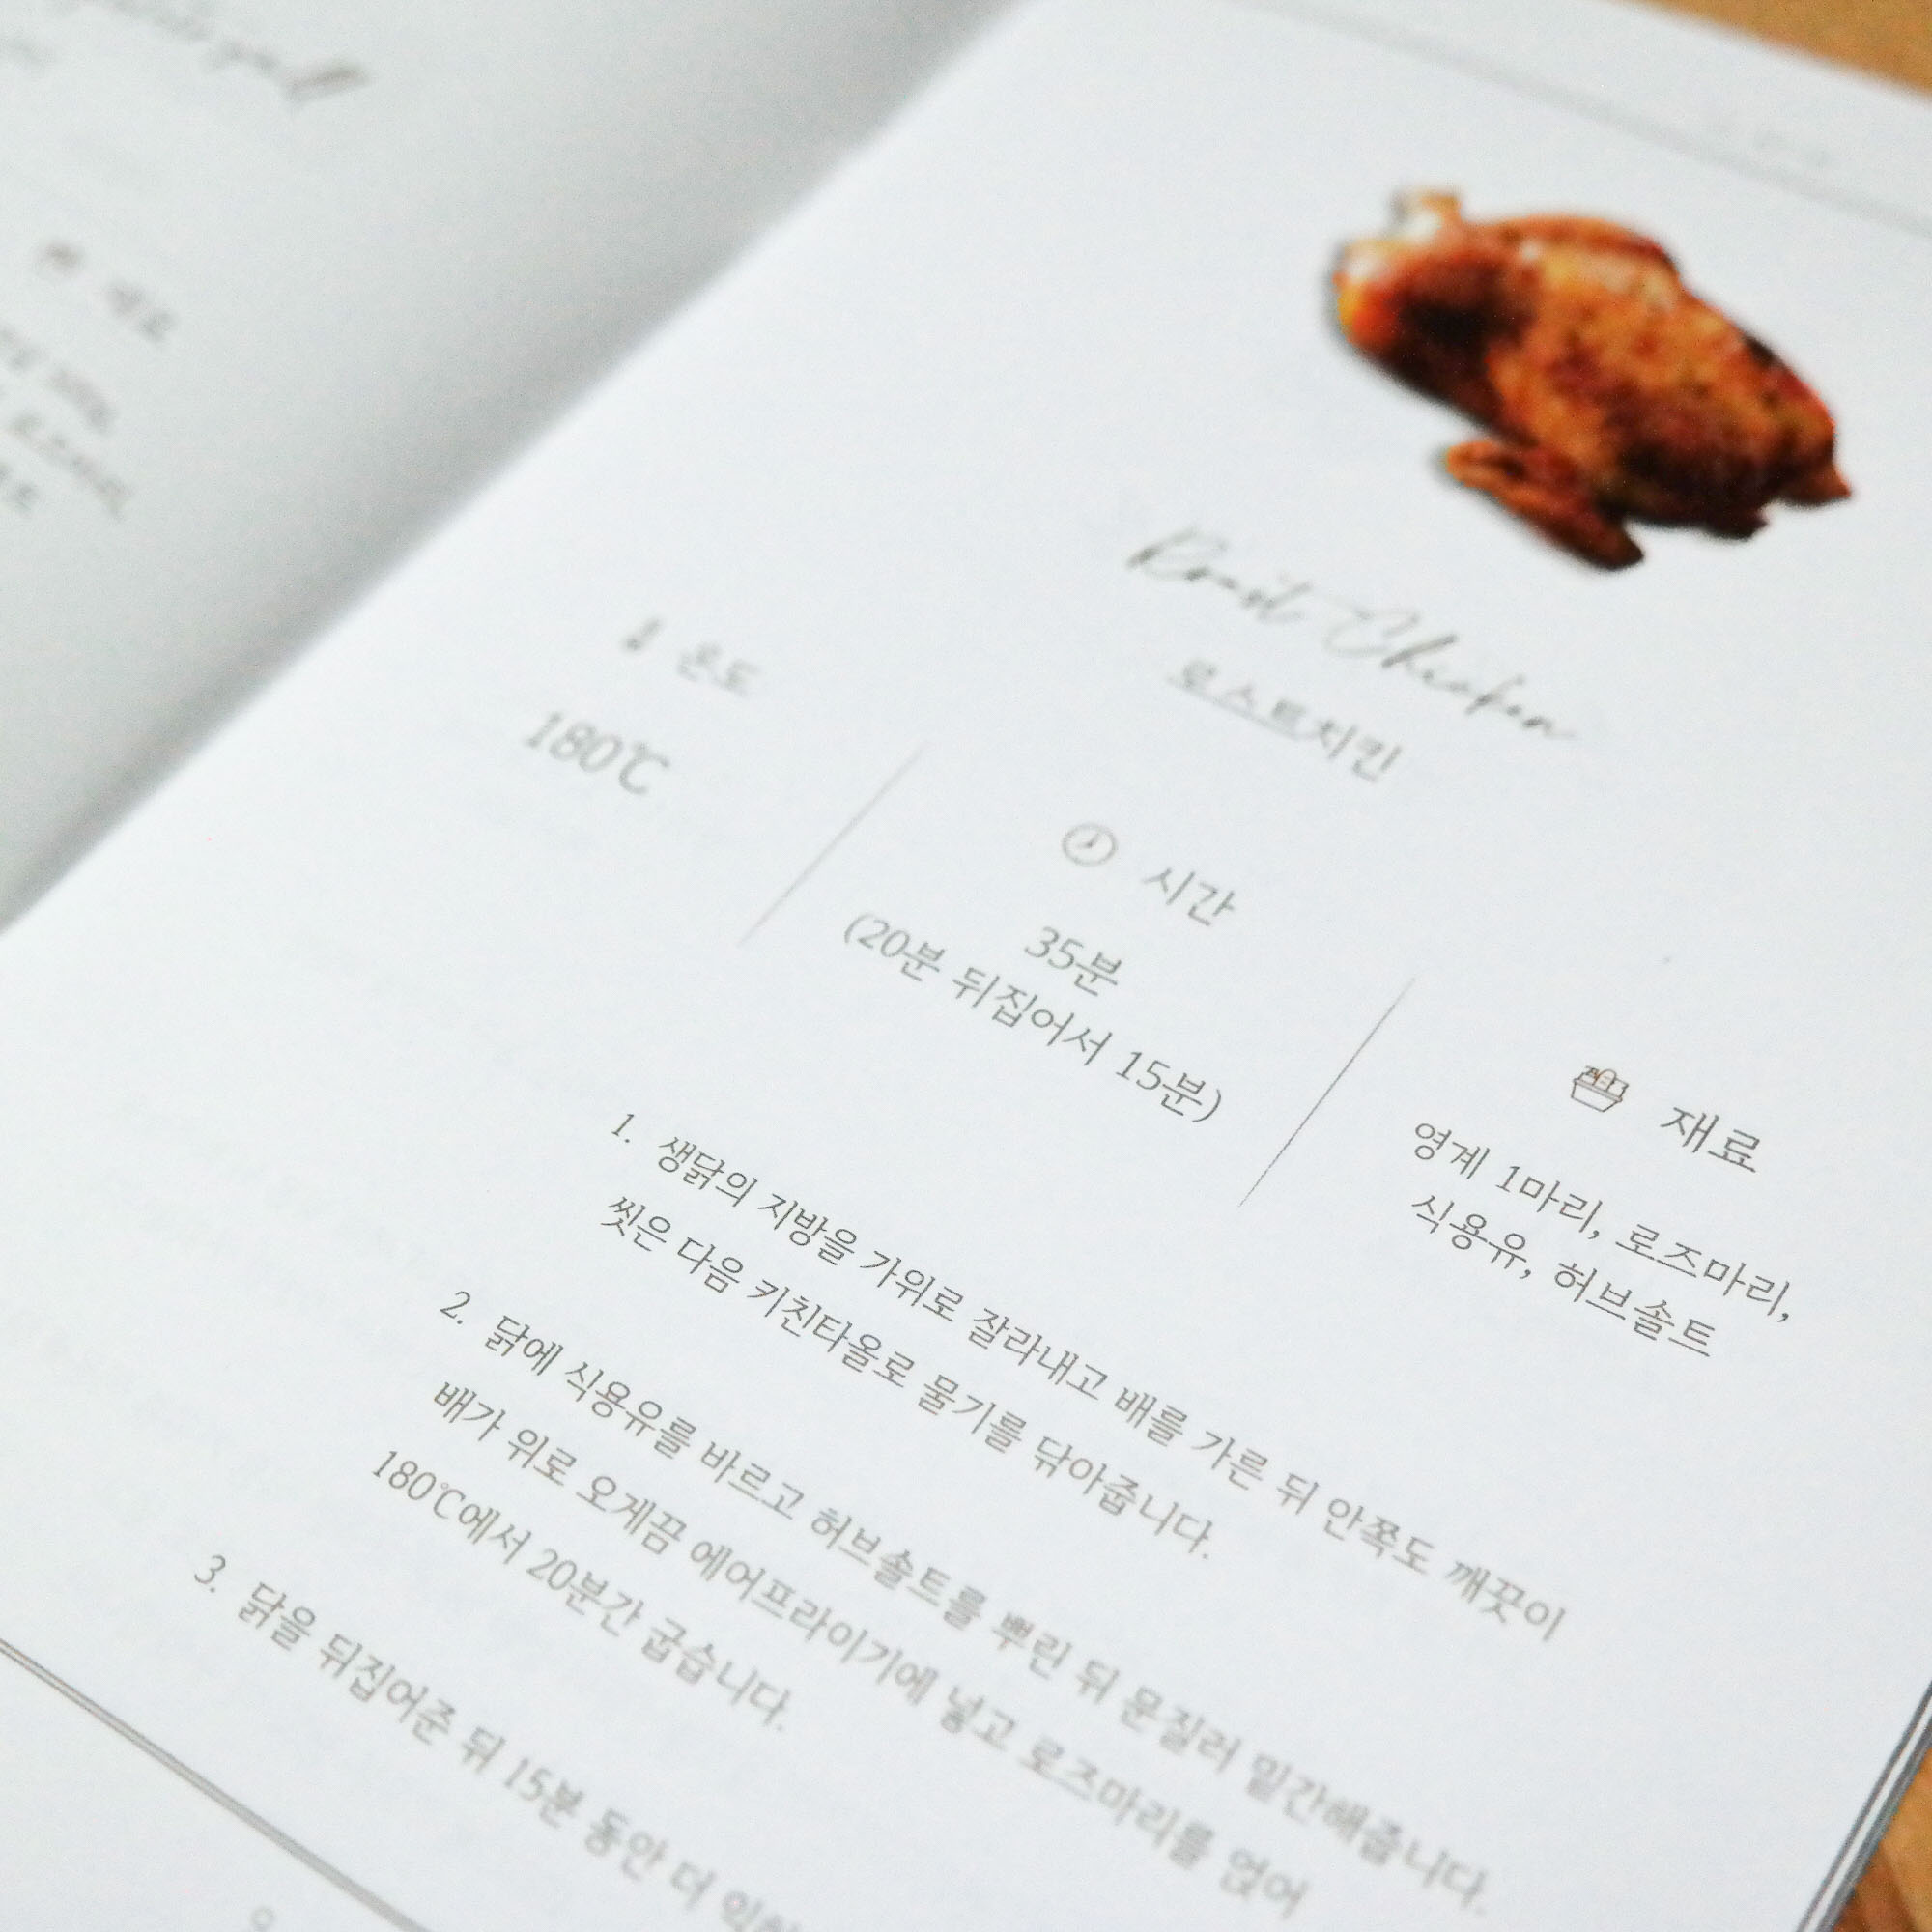 Roast Chicken
로스트치킨
온도
180℃
시간
35분
(20분 뒤집어서 15분)
재료
영계 1마리, 로즈마리,
식용유, 허브솔트
1. 생닭의 지방을 가위로 잘라내고 배를 가른 뒤 안쪽도 깨끗이
씻은 다음 키친타올로 물기를 닦아줍니다.
2. 닭에 식용유를 바르고 허브솔트를 뿌린 뒤 문질러 밑간해줍니다.
배가 위로 오게끔 에어프라이기에 넣고 로즈마리를 얹어
180℃에서 20분간 굽습니다.
3. 닭을 뒤집어준 뒤 15분 동안 더